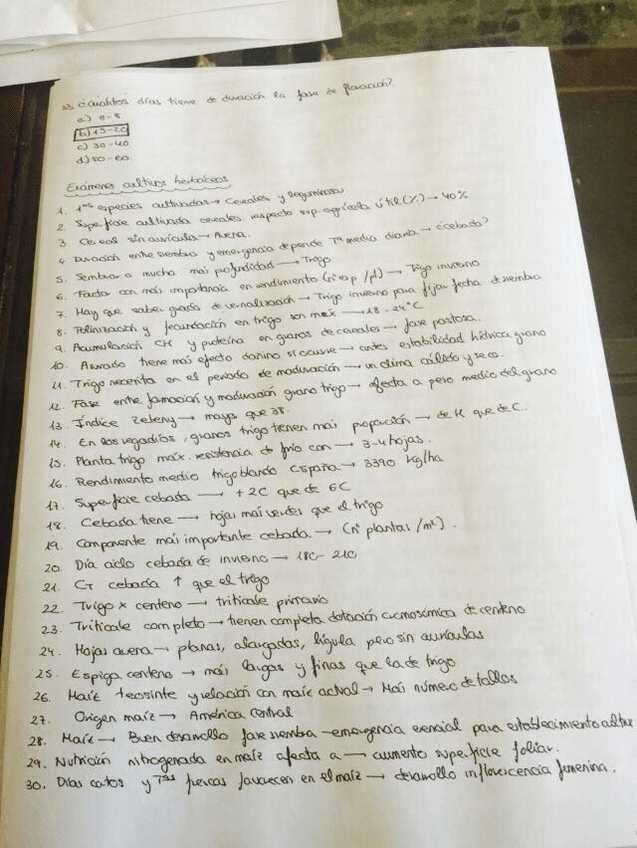 ¿Cuántos días tiene de duración la fase de floración?
a) 6-8
b) 15-20
c) 30-40
d) 50-60
Exámenes cultivos herbáceos
1. 1as especies cultivadas → Cereales y leguminosas
2. Superficie cultivada cereales respecto sup. agrícola útil (%) → 40%
3. Cereal sin aurícula → Avena.
4. Duración entre siembra y emergencia depende Tª media diaria → ¿cebada?
5. Sembrar a mucha más profundidad → Trigo
6. Factor con más importancia en rendimiento (nº esp/pl) → Trigo invierno
7. Hay que saber grado de vernalización → Trigo invierno para fijar fecha de siembra
8. Polinización y fecundación en trigo son máx → 18-24°C
9. Acumulación CH y proteína en granos de cereales → fase pastosa.
10. Asurado tiene más efecto dañino si ocurre → antes estabilidad hídrica grano
11. Trigo necesita en el periodo de maduración → un clima cálido y seco.
12. Fase entre formación y maduración grano trigo → afecta a peso medio del grano
13. Índice Zeleny → mayor que 38.
14. En los regadíos, granos trigo tienen más proporción → de H que de C.
15. Planta trigo máx. resistencia de frío con → 3-4 hojas.
16. Rendimiento medio trigo blando España → 3390 kg/ha
17. Superficie cebada → + 2C que de 6C
18. Cebada tiene → hojas más verdes que el trigo
19. Componente más importante cebada → (nº plantas/m²).
20. Día ciclo cebada de invierno → 180-210
21. CT cebada ↑ que el trigo
22. Trigo x centeno → triticale primario
23. Triticale completo → tienen completa dotación cromosómica de centeno
24. Hojas avena → planas, alargadas, lígula pero sin aurículas
25. Espiga centeno → más largas y finas que la de trigo
26. Maíz teosinte y relación con maíz actual → Más número de tallos
27. Origen maíz → América Central
28. Maíz → Buen desarrollo fase siembra-emergencia esencial para establecimiento
29. Nutrición nitrogenada en maíz afecta a → aumento superficie foliar.
30. Días cortos y Tas frescas favorecen en el maíz → desarrollo inflorescencia femenina.